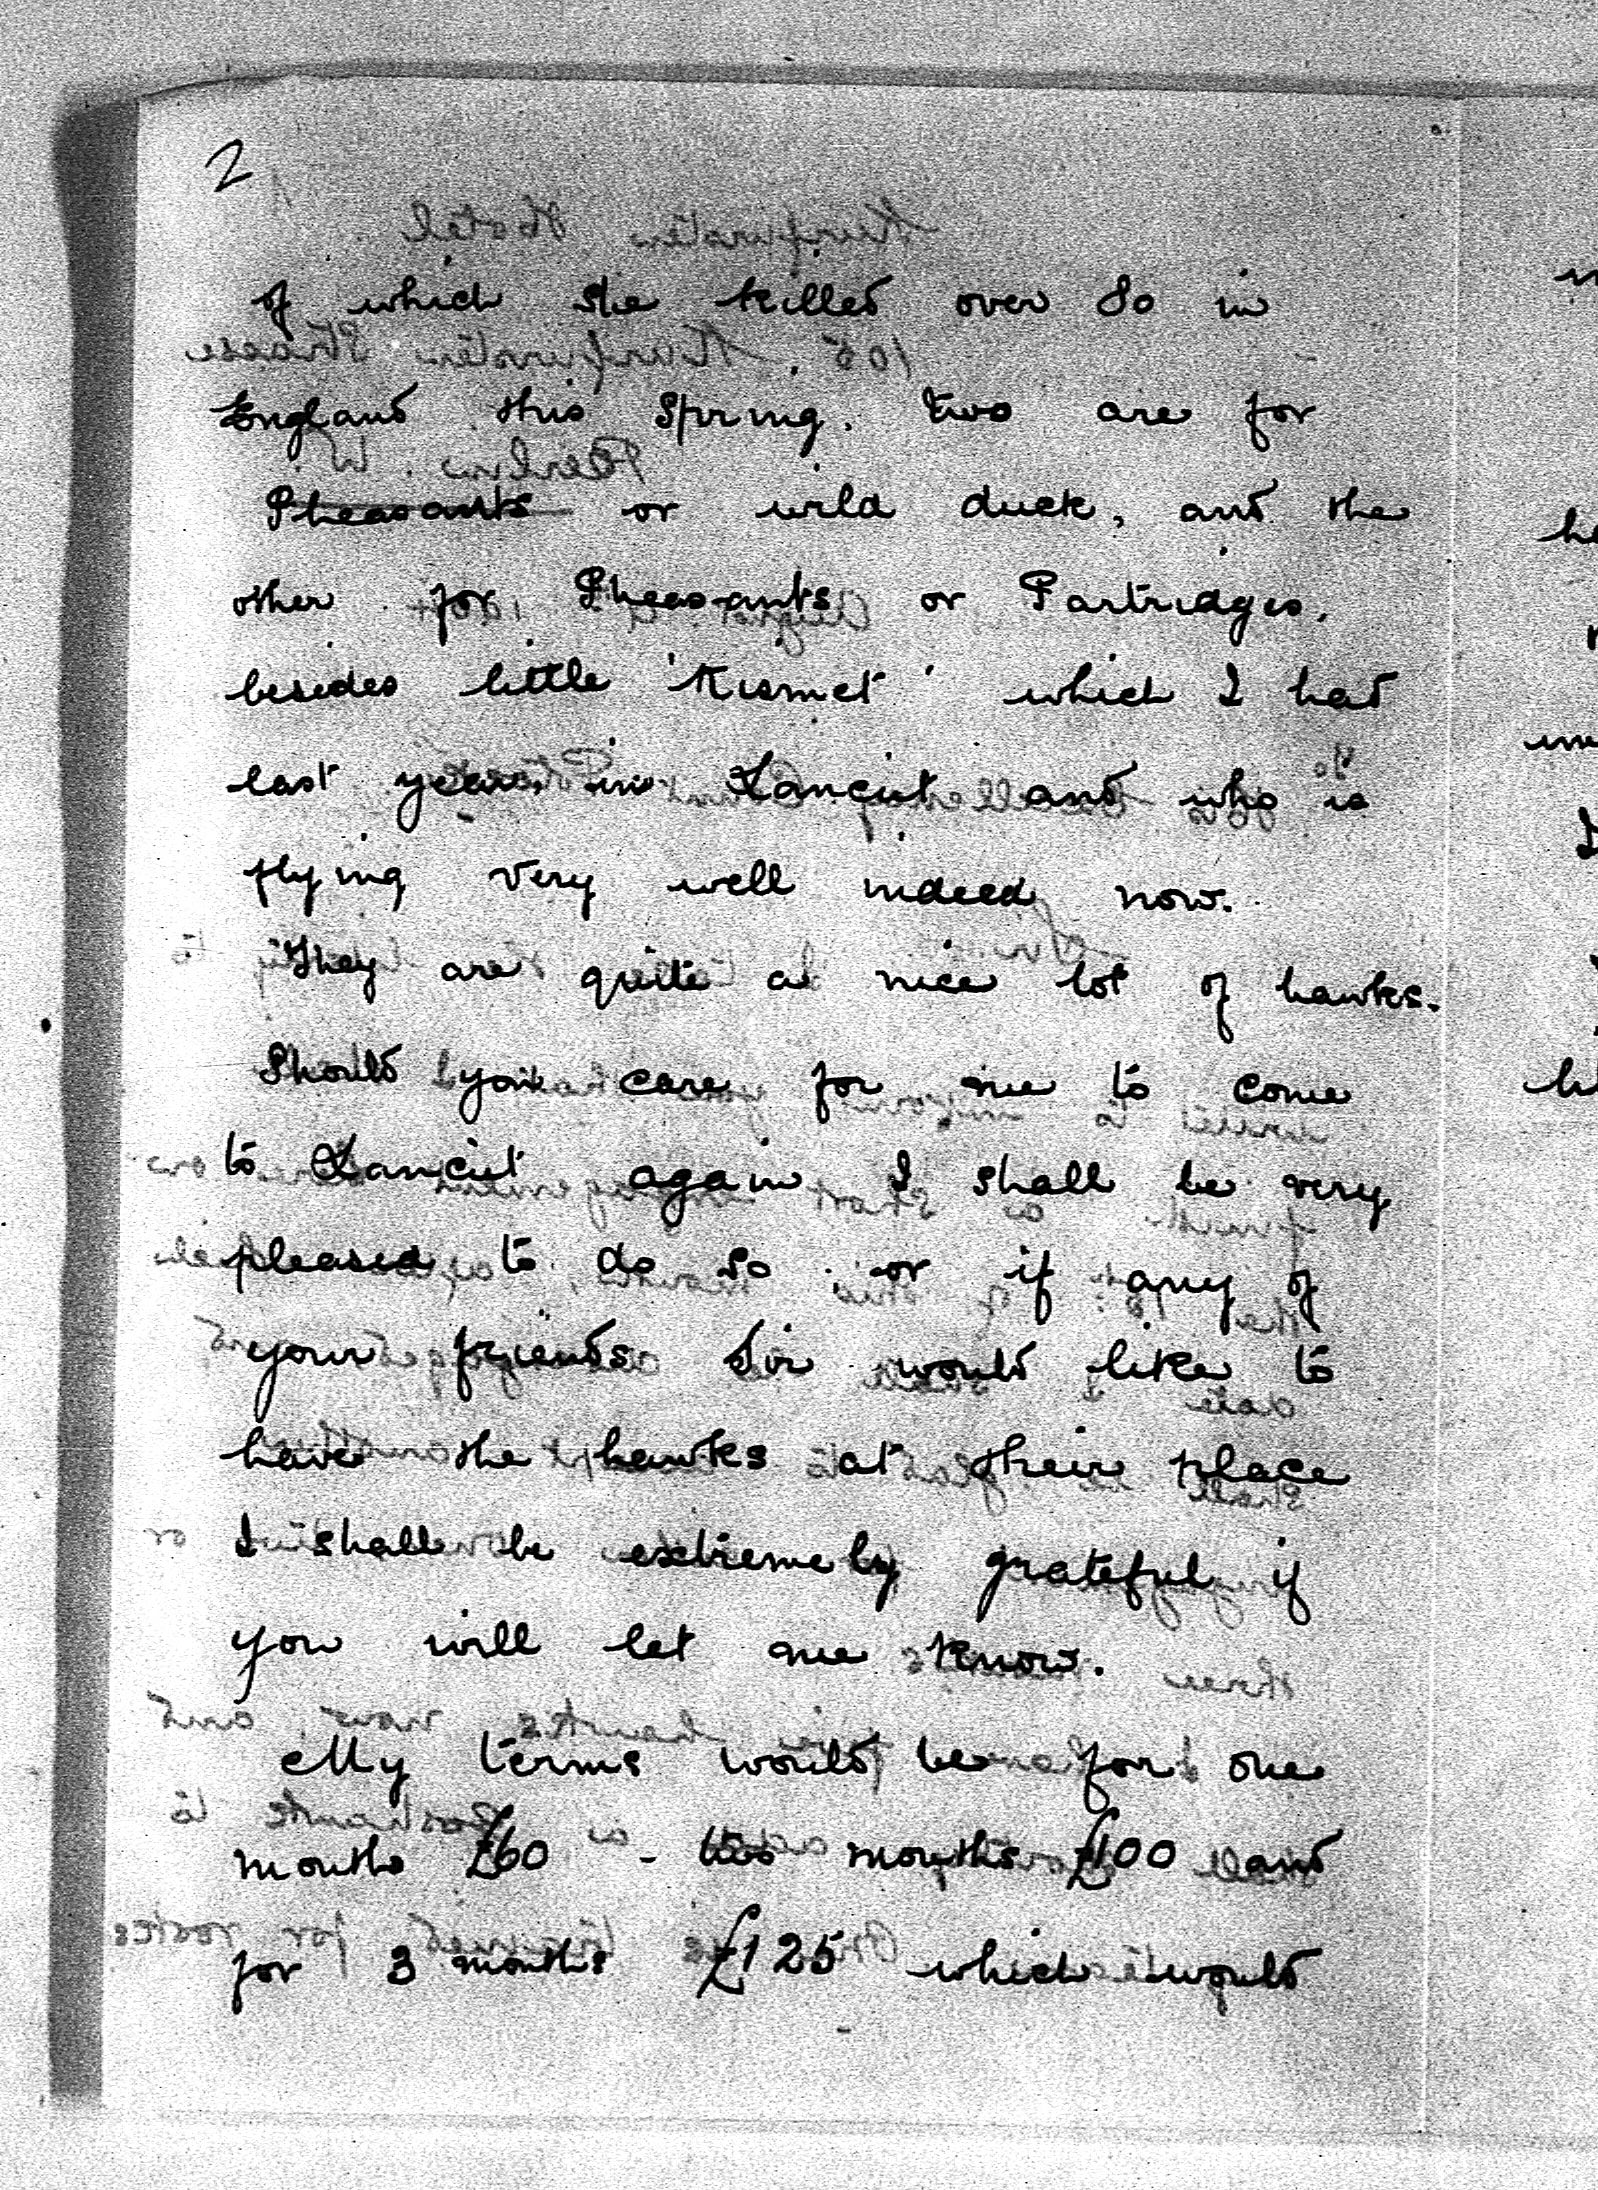 2
of which she killed over 80 in
England this Spring. two are for
Pheasants or wild duck, and the
other for Pheasants or Partridges,
besides little 'Kismet' which I had
last year, in Lancut and who is
flying very well indeed now.
They are quite a nice lot of hawks.
Should you care for me to come
to Lancut again I shall be very
pleased to do so or if any of
your friends Sir would like to
have the hawks at their place
I shall be extremely grateful if
you will let me know.
My terms would be for one
months £60 - two months £100 and
for 3 months £125 which would